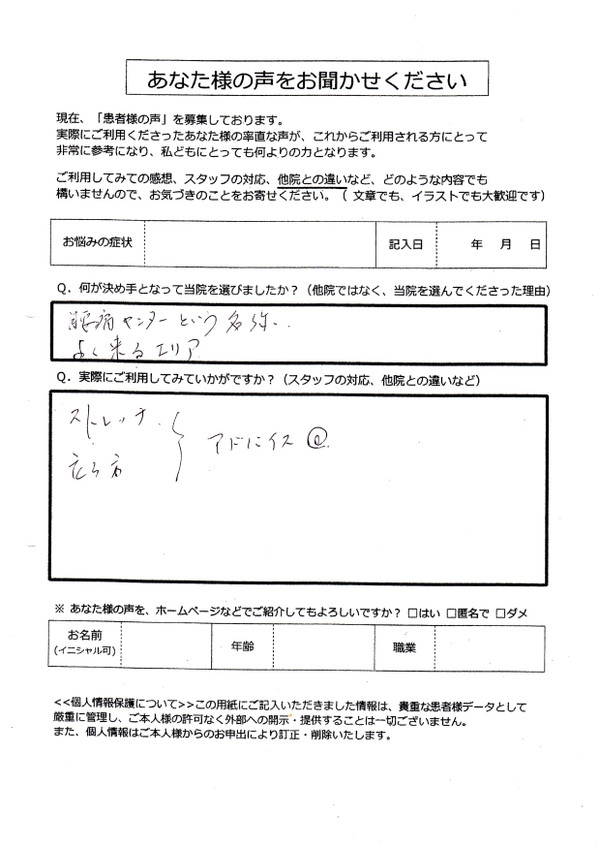 あなた様の声をお聞かせください
現在、「患者様の声」を募集しております。
実際にご利用くださったあなた様の率直な声が、これからご利用される方にとって
非常に参考になり、私どもにとっても何よりの力となります。
ご利用してみての感想、スタッフの対応、他院との違いなど、どのような内容でも
構いませんので、お気づきのことをお寄せください。（ 文章でも、イラストでも大歓迎です）
お悩みの症状 記入日 年 月 日
Q．何が決め手となって当院を選びましたか？（他院ではなく、当院を選んでくださった理由）
腰痛センターという名称.
よく来るエリア
Q．実際にご利用してみていかがですか？（スタッフの対応、他院との違いなど）
ストレッチ
立ち方
アドバイス
※ あなた様の声を、ホームページなどでご紹介してもよろしいですか？ □はい □匿名で □ダメ
お名前
(イニシャル可)
年齢
職業
<<個人情報保護について>>この用紙にご記入いただきました情報は、貴重な患者様データとして
厳重に管理し、ご本人様の許可なく外部への開示・提供することは一切ございません。
また、個人情報はご本人様からのお申出により訂正・削除いたします。